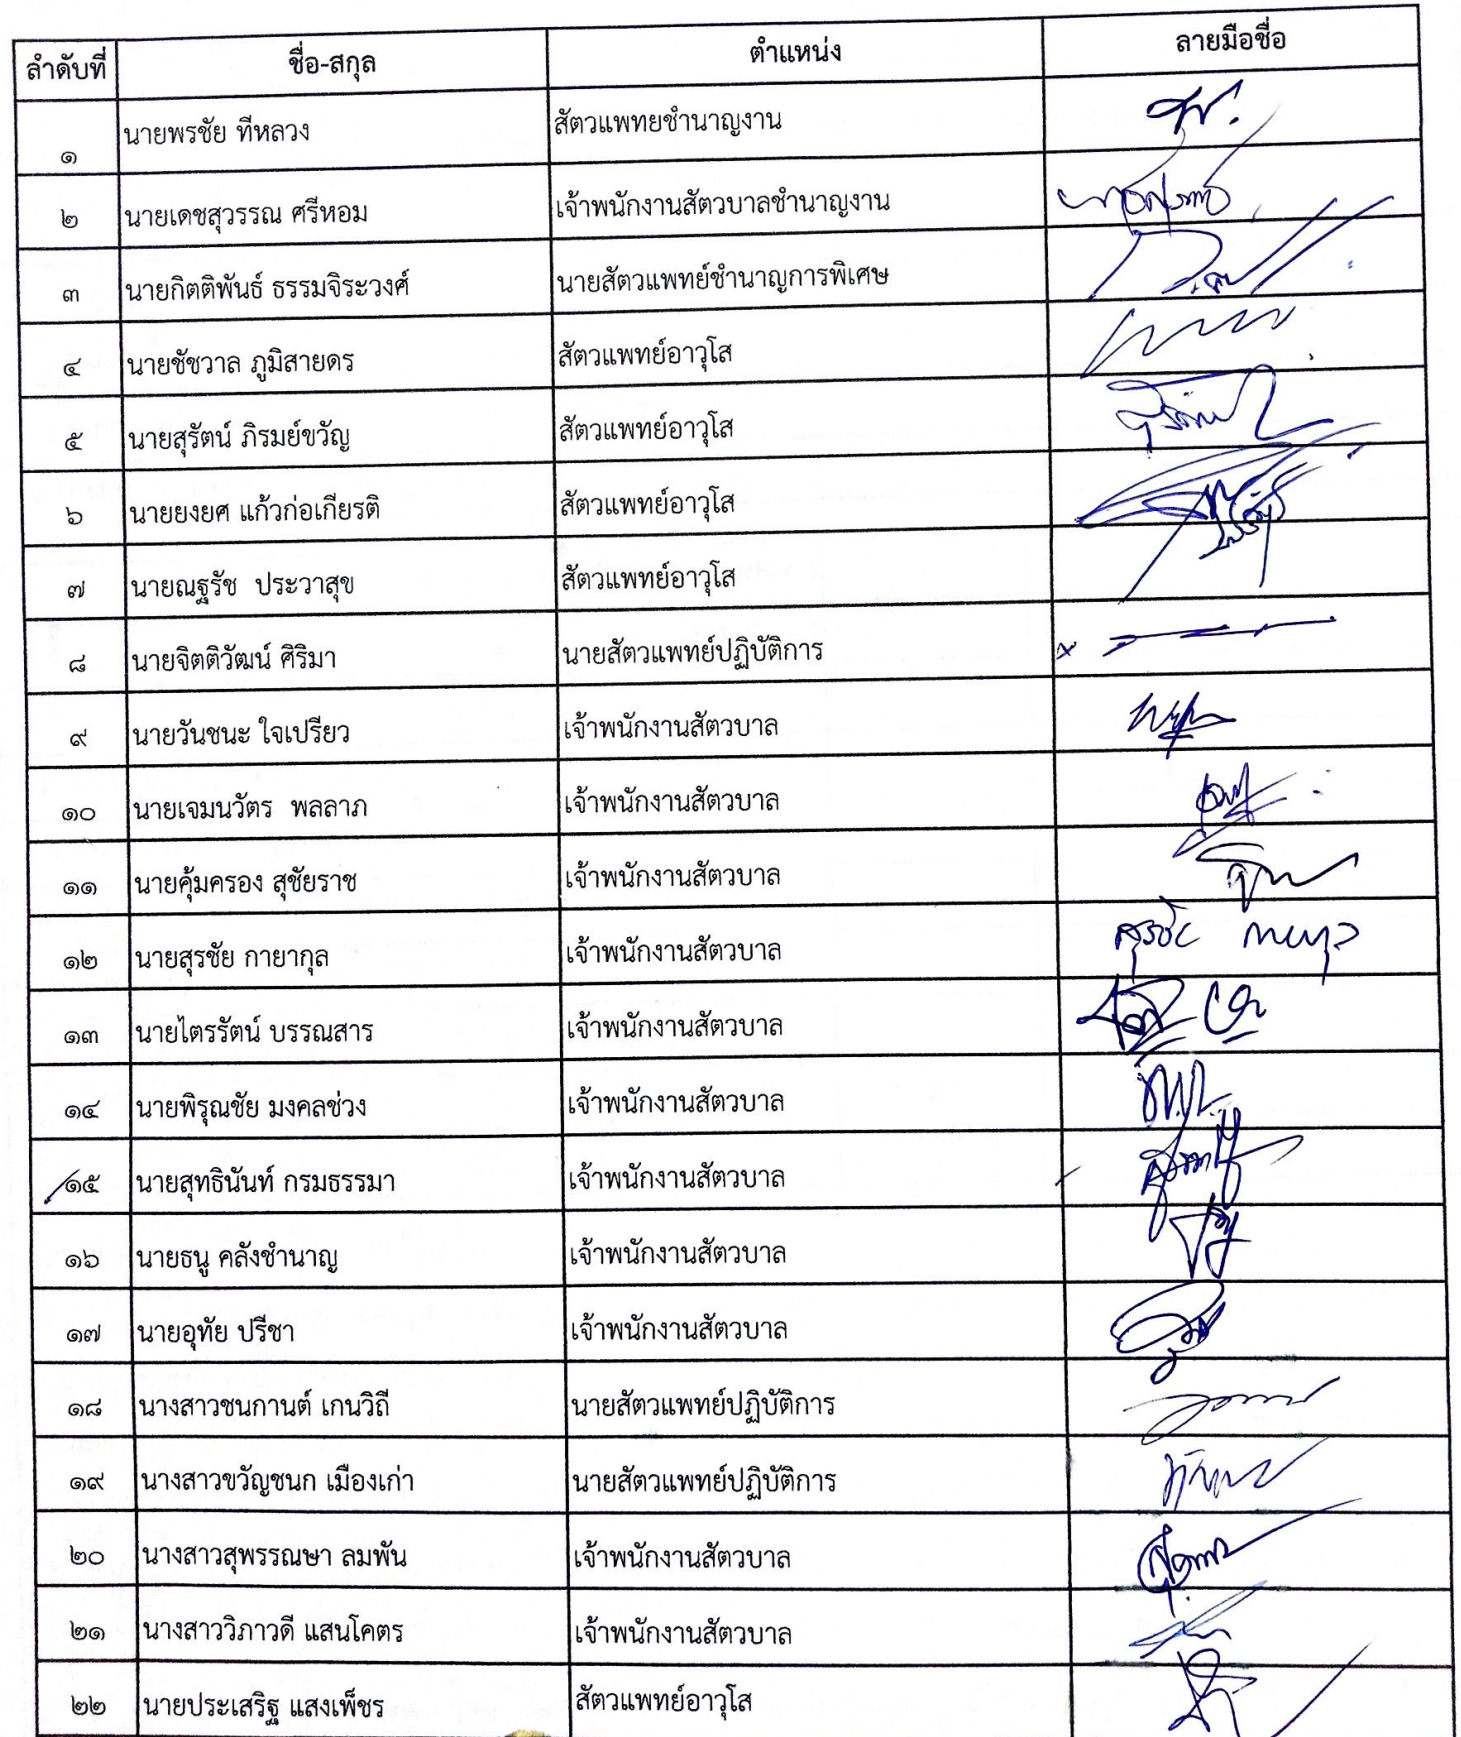 ลำดับที่ ชื่อ-สกุล ตำแหน่ง ลายมือชื่อ
๑ นายพรชัย ทีหลวง สัตวแพทยชำนาญงาน
๒ นายเดชสุวรรณ ศรีหอม เจ้าพนักงานสัตวบาลชำนาญงาน
๓ นายกิตติพันธ์ ธรรมจิระวงศ์ นายสัตวแพทย์ชำนาญการพิเศษ
๔ นายชัชวาล ภูมิสายดร สัตวแพทย์อาวุโส
๕ นายสุรัตน์ ภิรมย์ขวัญ สัตวแพทย์อาวุโส
๖ นายยงยศ แก้วก่อเกียรติ สัตวแพทย์อาวุโส
๗ นายณฐรัช ประวาสุข สัตวแพทย์อาวุโส
๘ นายจิตติวัฒน์ ศิริมา นายสัตวแพทย์ปฏิบัติการ
๙ นายวันชนะ ใจเปรียว เจ้าพนักงานสัตวบาล
๑๐ นายเจมนวัตร พลลาภ เจ้าพนักงานสัตวบาล
๑๑ นายคุ้มครอง สุชัยราช เจ้าพนักงานสัตวบาล
๑๒ นายสุรชัย กายากุล เจ้าพนักงานสัตวบาล
๑๓ นายไตรรัตน์ บรรณสาร เจ้าพนักงานสัตวบาล
๑๔ นายพิรุณชัย มงคลช่วง เจ้าพนักงานสัตวบาล
๑๕ นายสุทธินันท์ กรมธรรมา เจ้าพนักงานสัตวบาล
๑๖ นายธนู คลังชำนาญ เจ้าพนักงานสัตวบาล
๑๗ นายอุทัย ปรีชา เจ้าพนักงานสัตวบาล
๑๘ นางสาวชนกานต์ เกนวิถี นายสัตวแพทย์ปฏิบัติการ
๑๙ นางสาวขวัญชนก เมืองเก่า นายสัตวแพทย์ปฏิบัติการ
๒๐ นางสาวสุพรรณษา ลมพัน เจ้าพนักงานสัตวบาล
๒๑ นางสาววิภาวดี แสนโคตร เจ้าพนักงานสัตวบาล
๒๒ นายประเสริฐ แสงเพ็ชร สัตวแพทย์อาวุโส